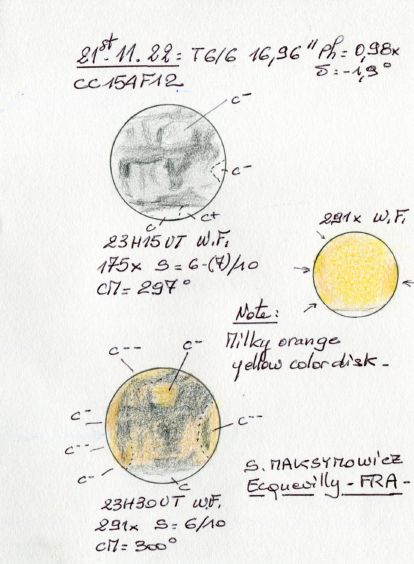 21st. 11. 22 : T6/6 16,96" Ph = 0,98x
δ : -1,9°
CC15AF12
C-
C-
C C+
23H15 UT W.F.
175x S = 6-(7)/10
CM = 297°
291x W.F.
Note :
Milky orange
yellow color disk -
C-- C-
C- C--
C--
C-
C
23H30 UT W.F.
291x S = 6/10
CM = 300°
S. MAKSYMOWICZ
Ecquevilly - FRA -